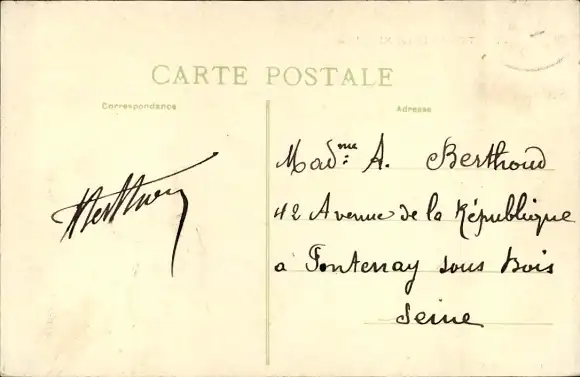 CARTE POSTALE
Correspondance
Adresse
Mad.me A. Berthoud
42 Avenue de la République
à Fontenay sous Bois
Seine